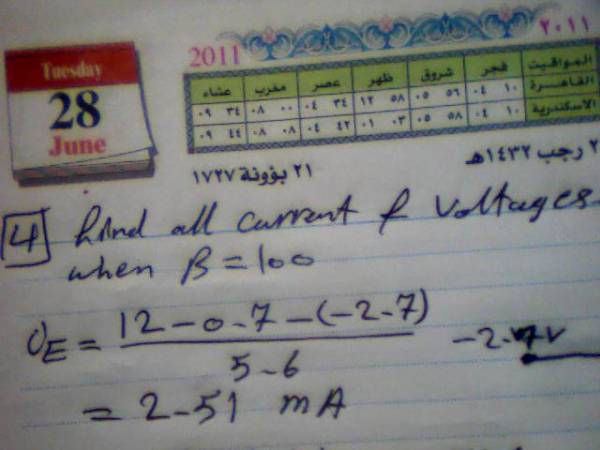 2011
٢٠١١
Tuesday
28
June
المواقيت فجر شروق ظهر عصر مغرب عشاء
القاهرة ١٠ ٠٤ ٥٦ ٠٥ ٥٨ ١٢ ٣٤ ٠٤ ٠٠ ٠٨ ٣٤ ٠٩
الاسكندرية ١٠ ٠٤ ٥٨ ٠٥ ٠٣ ٠١ ٤٢ ٠٤ ٠٨ ٠٨ ٤٤ ٠٩
رجب ١٤٣٢هـ
٢١ بؤونة ١٧٢٧
4 find all current & voltages
when β = 100
12 - 0.7 - (-2.7)
5.6
= 2.51 mA